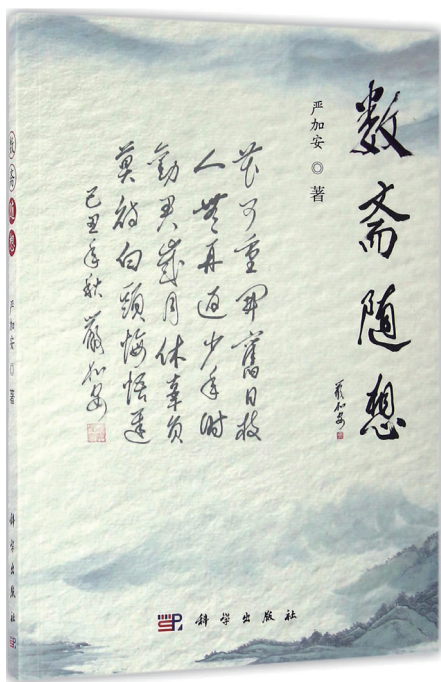 数斋随想
严加安
严加安 ◎ 著
花可重开旧日枝
人无再返少年时
劝君岁月休辜负
莫待白头悔悟迟
己丑年秋 严加安
科学出版社
数斋随想
严加安 ◎ 著
科学出版社